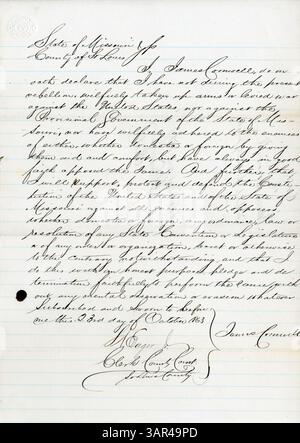 State of Missouri } ss
County of St Louis
I, James Cornwell, do on
oath declare that I have not during the present
rebellion wilfully taken up arms or levied war
against the United States nor against the
Provisional Government of the State of Mis-
souri, nor have wilfully adhered to the enemies
of either, whether domestic or foreign by giving
them aid and comfort, but have always in good
faith opposed the same. And further that
I will support, protect and defend the Consti-
tution of the United States and of the State of
Missouri against all enemies and opposers
whether domestic or foreign, any ordinance, law or
resolution of any State Convention or Legislature
or of any order or organization, secret or otherwise
to the contrary notwithstanding, and that I
do this with an honest purpose, pledge and de
termination faithfully to perform the same with
out any mental reservation or evasion whatever
Subscribed and sworn to before
me this 23rd day of October 1863
James Cornwell
Clerk County Court
St Louis County
alamy
Image ID: 3AR49PD
www.alamy.com